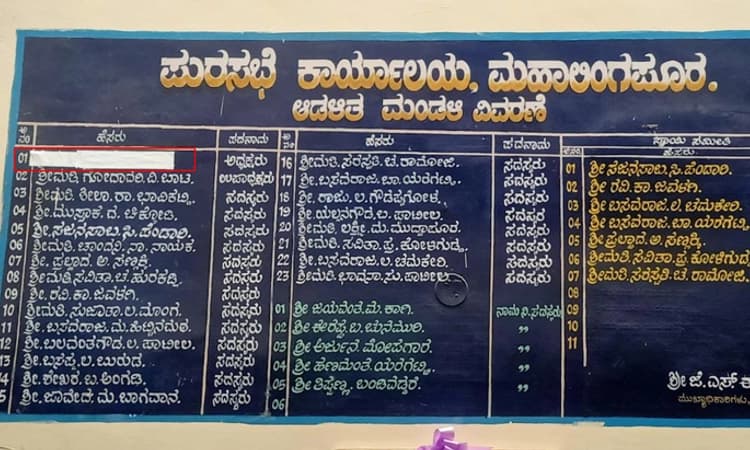 ಪುರಸಭೆ ಕಾರ್ಯಾಲಯ, ಮಹಾಲಿಂಗಪೂರ.
ಆಡಳಿತ ಮಂಡಳಿ ವಿವರಣೆ
ಹೆಸರು ಪದನಾಮ
01 ಅಧ್ಯಕ್ಷರು
02 ಶ್ರೀಮತಿ. ಗೋದಾವರಿ. ವಿ. ಬಾಟ. ಉಪಾಧ್ಯಕ್ಷರು
03 ಶ್ರೀಮತಿ. ಶೀಲಾ. ರಾ. ಭಾವಿಕಟ್ಟಿ. ಸದಸ್ಯರು
04 ಶ್ರೀ. ಮುಸ್ತಾಕ. ದ. ಚಿಕ್ಕೋಡಿ. ಸದಸ್ಯರು
05 ಶ್ರೀ. ಸಜನಸಾಬ. ಸಿ. ಪೆಂಡಾರಿ. ಸದಸ್ಯರು
06 ಶ್ರೀಮತಿ. ಚಾಂದನಿ. ನಾ. ನಾಯಕ. ಸದಸ್ಯರು
07 ಶ್ರೀ. ಪ್ರಲ್ಹಾದ. ಅ. ಸಣ್ಣಕ್ಕಿ. ಸದಸ್ಯರು
08 ಶ್ರೀಮತಿ. ಸವಿತಾ. ಚ. ಹುರಕಡ್ಲಿ. ಸದಸ್ಯರು
09 ಶ್ರೀ. ರವಿ. ಕಾ. ಜವಳಗಿ. ಸದಸ್ಯರು
10 ಶ್ರೀಮತಿ. ಸುಜಾತಾ. ಲ. ಮಾಂಗ. ಸದಸ್ಯರು
11 ಶ್ರೀ. ಬಸವರಾಜ. ಮ. ಹಿಟ್ಟಿನಮಠ. ಸದಸ್ಯರು
12 ಶ್ರೀ. ಬಲವಂತಗೌಡ. ಲ. ಪಾಟೀಲ. ಸದಸ್ಯರು
13 ಶ್ರೀ. ಬಸಪ್ಪ. ಲ. ಬುರುಡ. ಸದಸ್ಯರು
4 ಶ್ರೀ. ಶೇಖರ. ಬ. ಅಂಗಡಿ. ಸದಸ್ಯರು
5 ಶ್ರೀ. ಜಾವೇದ. ಮ. ಬಾಗವಾನ. ಸದಸ್ಯರು
ಹೆಸರು ಪದನಾಮ
16 ಶ್ರೀಮತಿ. ಸರಸ್ವತಿ. ಚ. ರಾಮೋಜಿ. ಸದಸ್ಯರು
17 ಶ್ರೀ. ಬಸವರಾಜ. ಬಾ. ಯರಗಟ್ಟಿ. ಸದಸ್ಯರು
18 ಶ್ರೀ. ರಾಜು. ಲ. ಗೌಡಪ್ಪಗೋಳ. ಸದಸ್ಯರು
19 ಶ್ರೀ. ಯಲ್ಲನಗೌಡ. ಲ. ಪಾಟೀಲ. ಸದಸ್ಯರು
20 ಶ್ರೀಮತಿ. ಲಕ್ಷ್ಮೀ. ಮ. ಮುದ್ದಾಪೂರ. ಸದಸ್ಯರು
21 ಶ್ರೀಮತಿ. ಸವಿತಾ. ಪ್ರ. ಕೋಳಿಗುಡ್ಡ. ಸದಸ್ಯರು
22 ಶ್ರೀ. ಬಸವರಾಜ. ಲ. ಚಮಕೇರಿ. ಸದಸ್ಯರು
23 ಶ್ರೀಮತಿ. ಭಾವನಾ. ಸು. ಪಾಟೀಲ. ಸದಸ್ಯರು
01 ಶ್ರೀ. ಜಯವಂತ. ಮ. ಕಾಗಿ. ನಾಮ ನಿ. ಸದಸ್ಯರು
02 ಶ್ರೀ. ಈರಪ್ಪ. ಬ. ಚುನಮುರಿ. ,,
03 ಶ್ರೀ. ಅರ್ಜುನ. ಮೋಪಗಾರ. ,,
04 ಶ್ರೀ. ಹಣಮಂತ. ಯರಗಟ್ಟಿ. ,,
05 ಶ್ರೀ. ತಿಪ್ಪಣ್ಣ. ಬಂಡಿವಡ್ಡರ. ,,
06
ಸ್ಥಾಯಿ ಸಮಿತಿ
ಹೆಸರು
01 ಶ್ರೀ. ಸಜನಸಾಬ. ಸಿ. ಪೆಂಡಾರಿ.
02 ಶ್ರೀ. ರವಿ. ಕಾ. ಜವಳಗಿ.
03 ಶ್ರೀ. ಬಸವರಾಜ. ಲ. ಚಮಕೇರಿ.
04 ಶ್ರೀ. ಬಸವರಾಜ. ಬಾ. ಯರಗಟ್ಟಿ.
05 ಶ್ರೀ. ಪ್ರಲ್ಹಾದ. ಅ. ಸಣ್ಣಕ್ಕಿ.
06 ಶ್ರೀಮತಿ. ಸವಿತಾ. ಪ್ರ. ಕೋಳಿಗುಡ್ಡ
07 ಶ್ರೀಮತಿ. ಸರಸ್ವತಿ. ಚ. ರಾಮೋಜಿ.
08
09
10
11
ಶ್ರೀ. ಜೆ. ಎಸ್.
ಮುಖ್ಯಾಧಿಕಾರಿಗಳು,